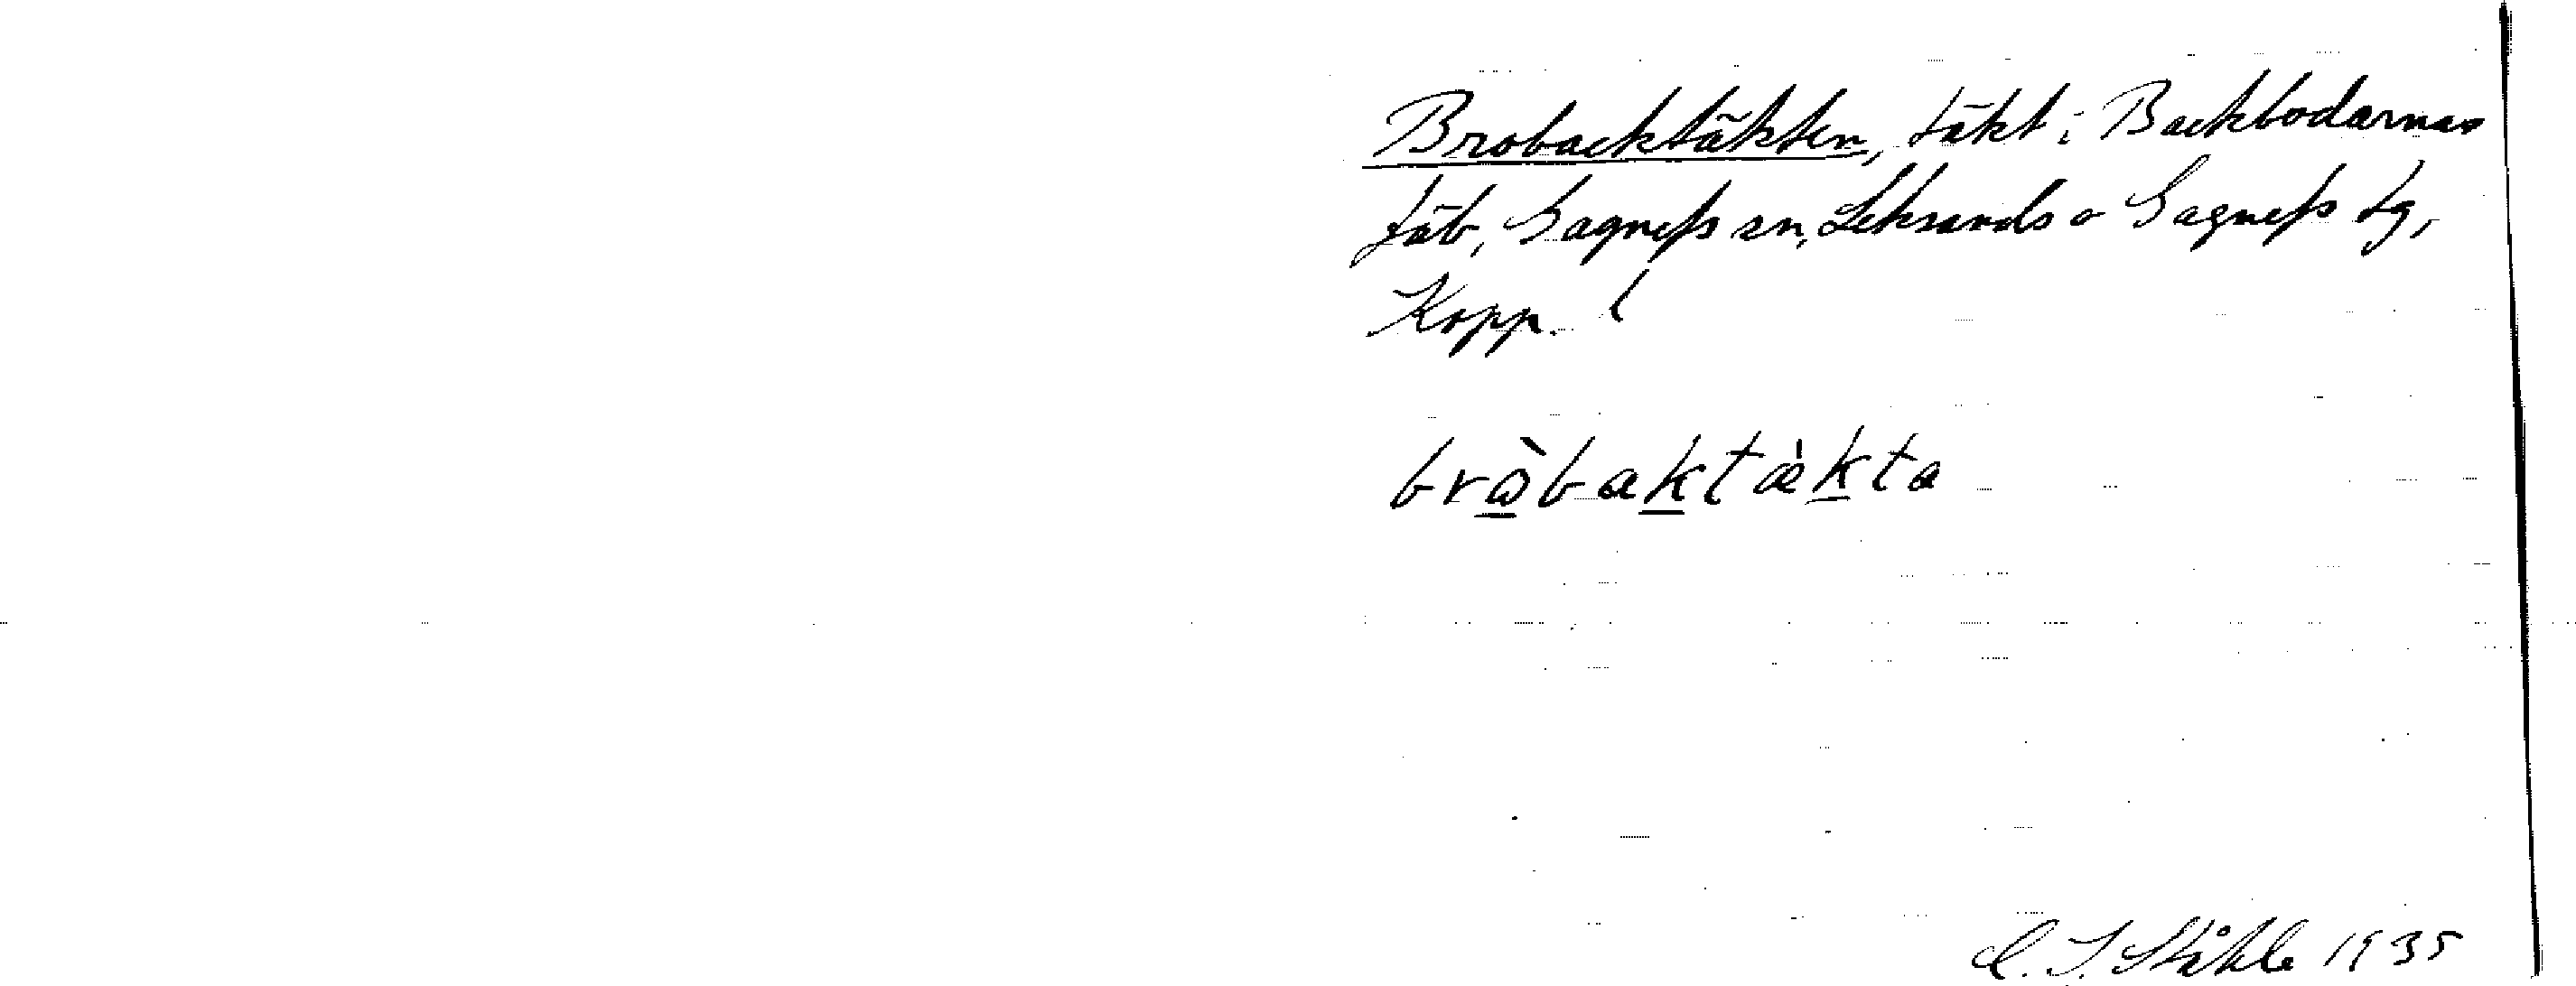 Brobacktäkten, täkt i Backbodarnas
fäb, Gagnefs sn, Leksands o Gagnefs tg,
Kopp. l
bròbaktæ̀kta
C. I. Ståhle 1935